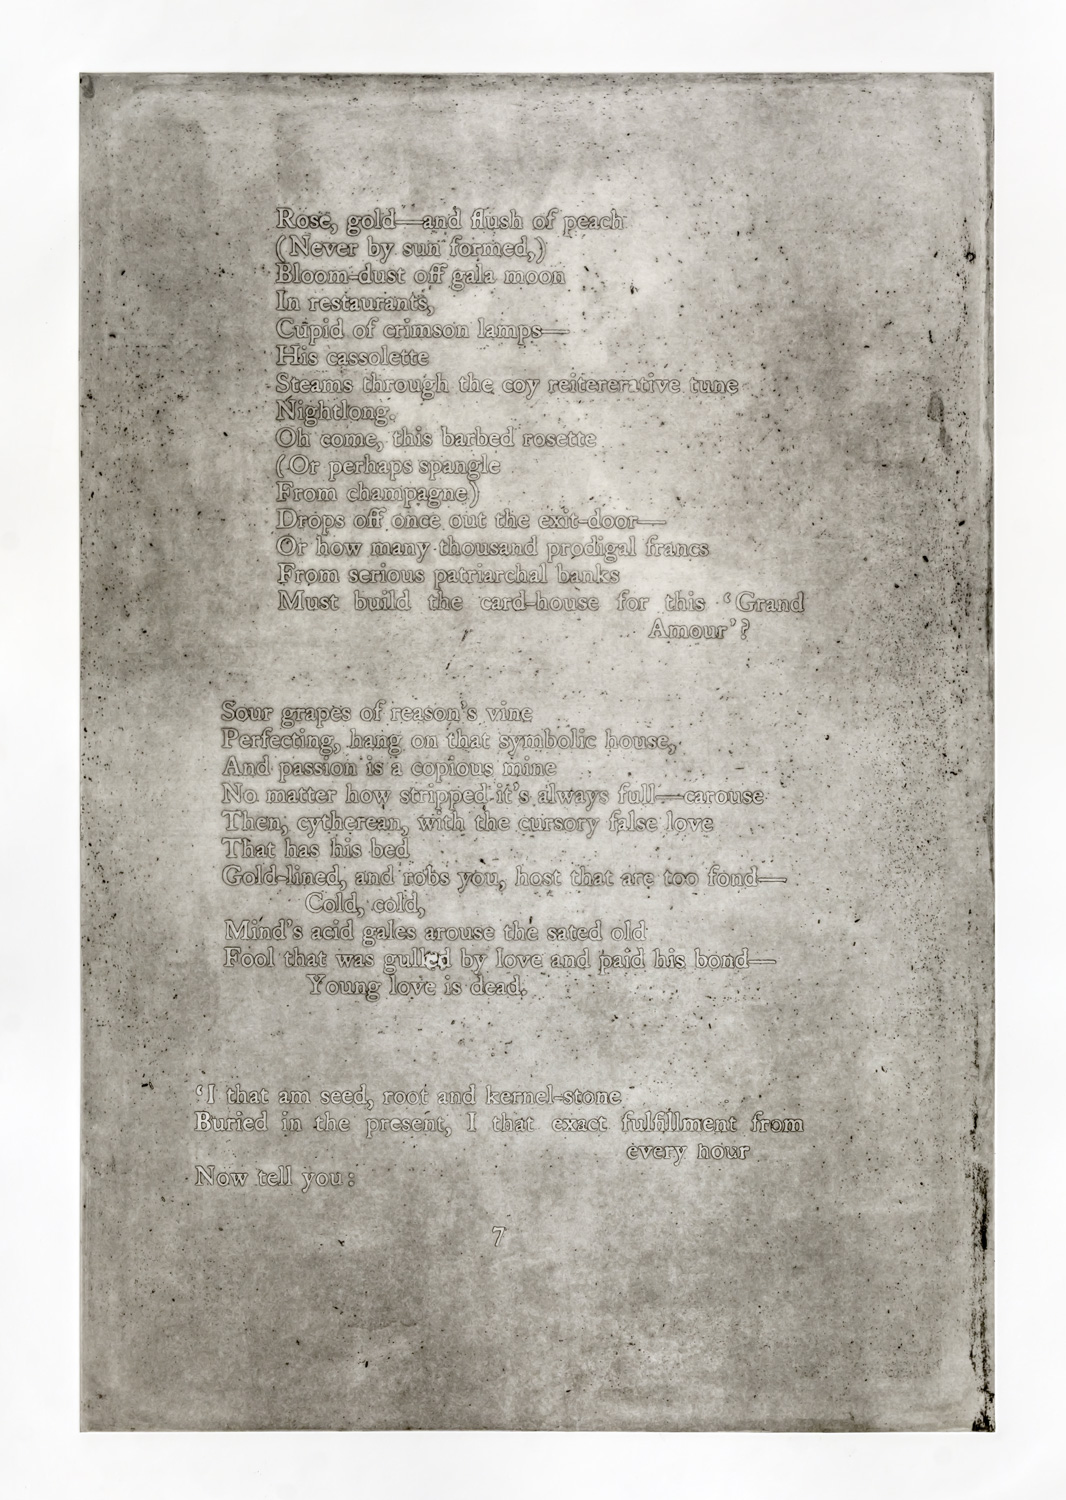 Rose, gold—and flush of peach
(Never by sun formed,)
Bloom-dust off gala moon
In restaurants,
Cupid of crimson lamps—
His cassolette
Steams through the coy reitererative tune
Nightlong.
Oh come, this barbed rosette
(Or perhaps spangle
From champagne)
Drops off once out the exit-door—
Or how many thousand prodigal francs
From serious patriarchal banks
Must build the card-house for this ‘Grand
Amour’?
Sour grapes of reason’s vine
Perfecting, hang on that symbolic house,
And passion is a copious mine
No matter how stripped it’s always full—carouse
Then, cytherean, with the cursory false love
That has his bed
Gold-lined, and robs you, host that are too fond—
Cold, cold,
Mind’s acid gales arouse the sated old
Fool that was gulled by love and paid his bond—
Young love is dead.
‘I that am seed, root and kernel-stone
Buried in the present, I that exact fulfillment from
every hour
Now tell you:
7